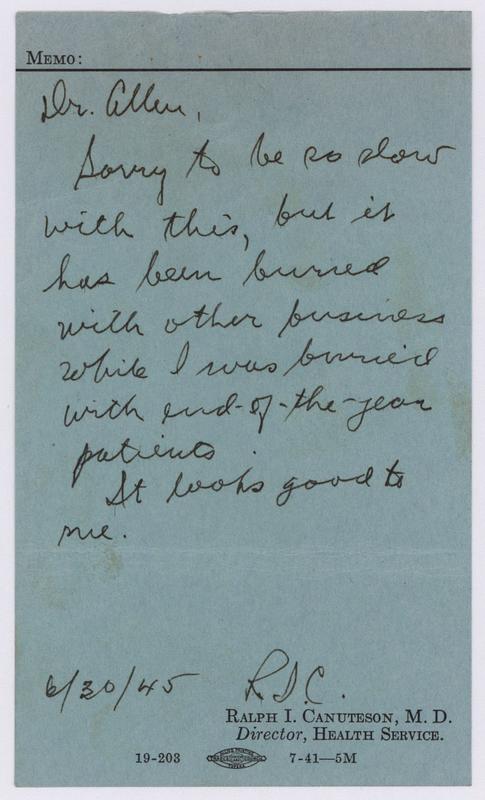 MEMO:
Dr. Allen,
Sorry to be so slow
with this, but it
has been buried
with other business
while I was buried
with end-of-the-year
patients.
It looks good to
me.
6/30/45 R.I.C.
RALPH I. CANUTESON, M. D.
Director, HEALTH SERVICE.
19-203 7-41—5M